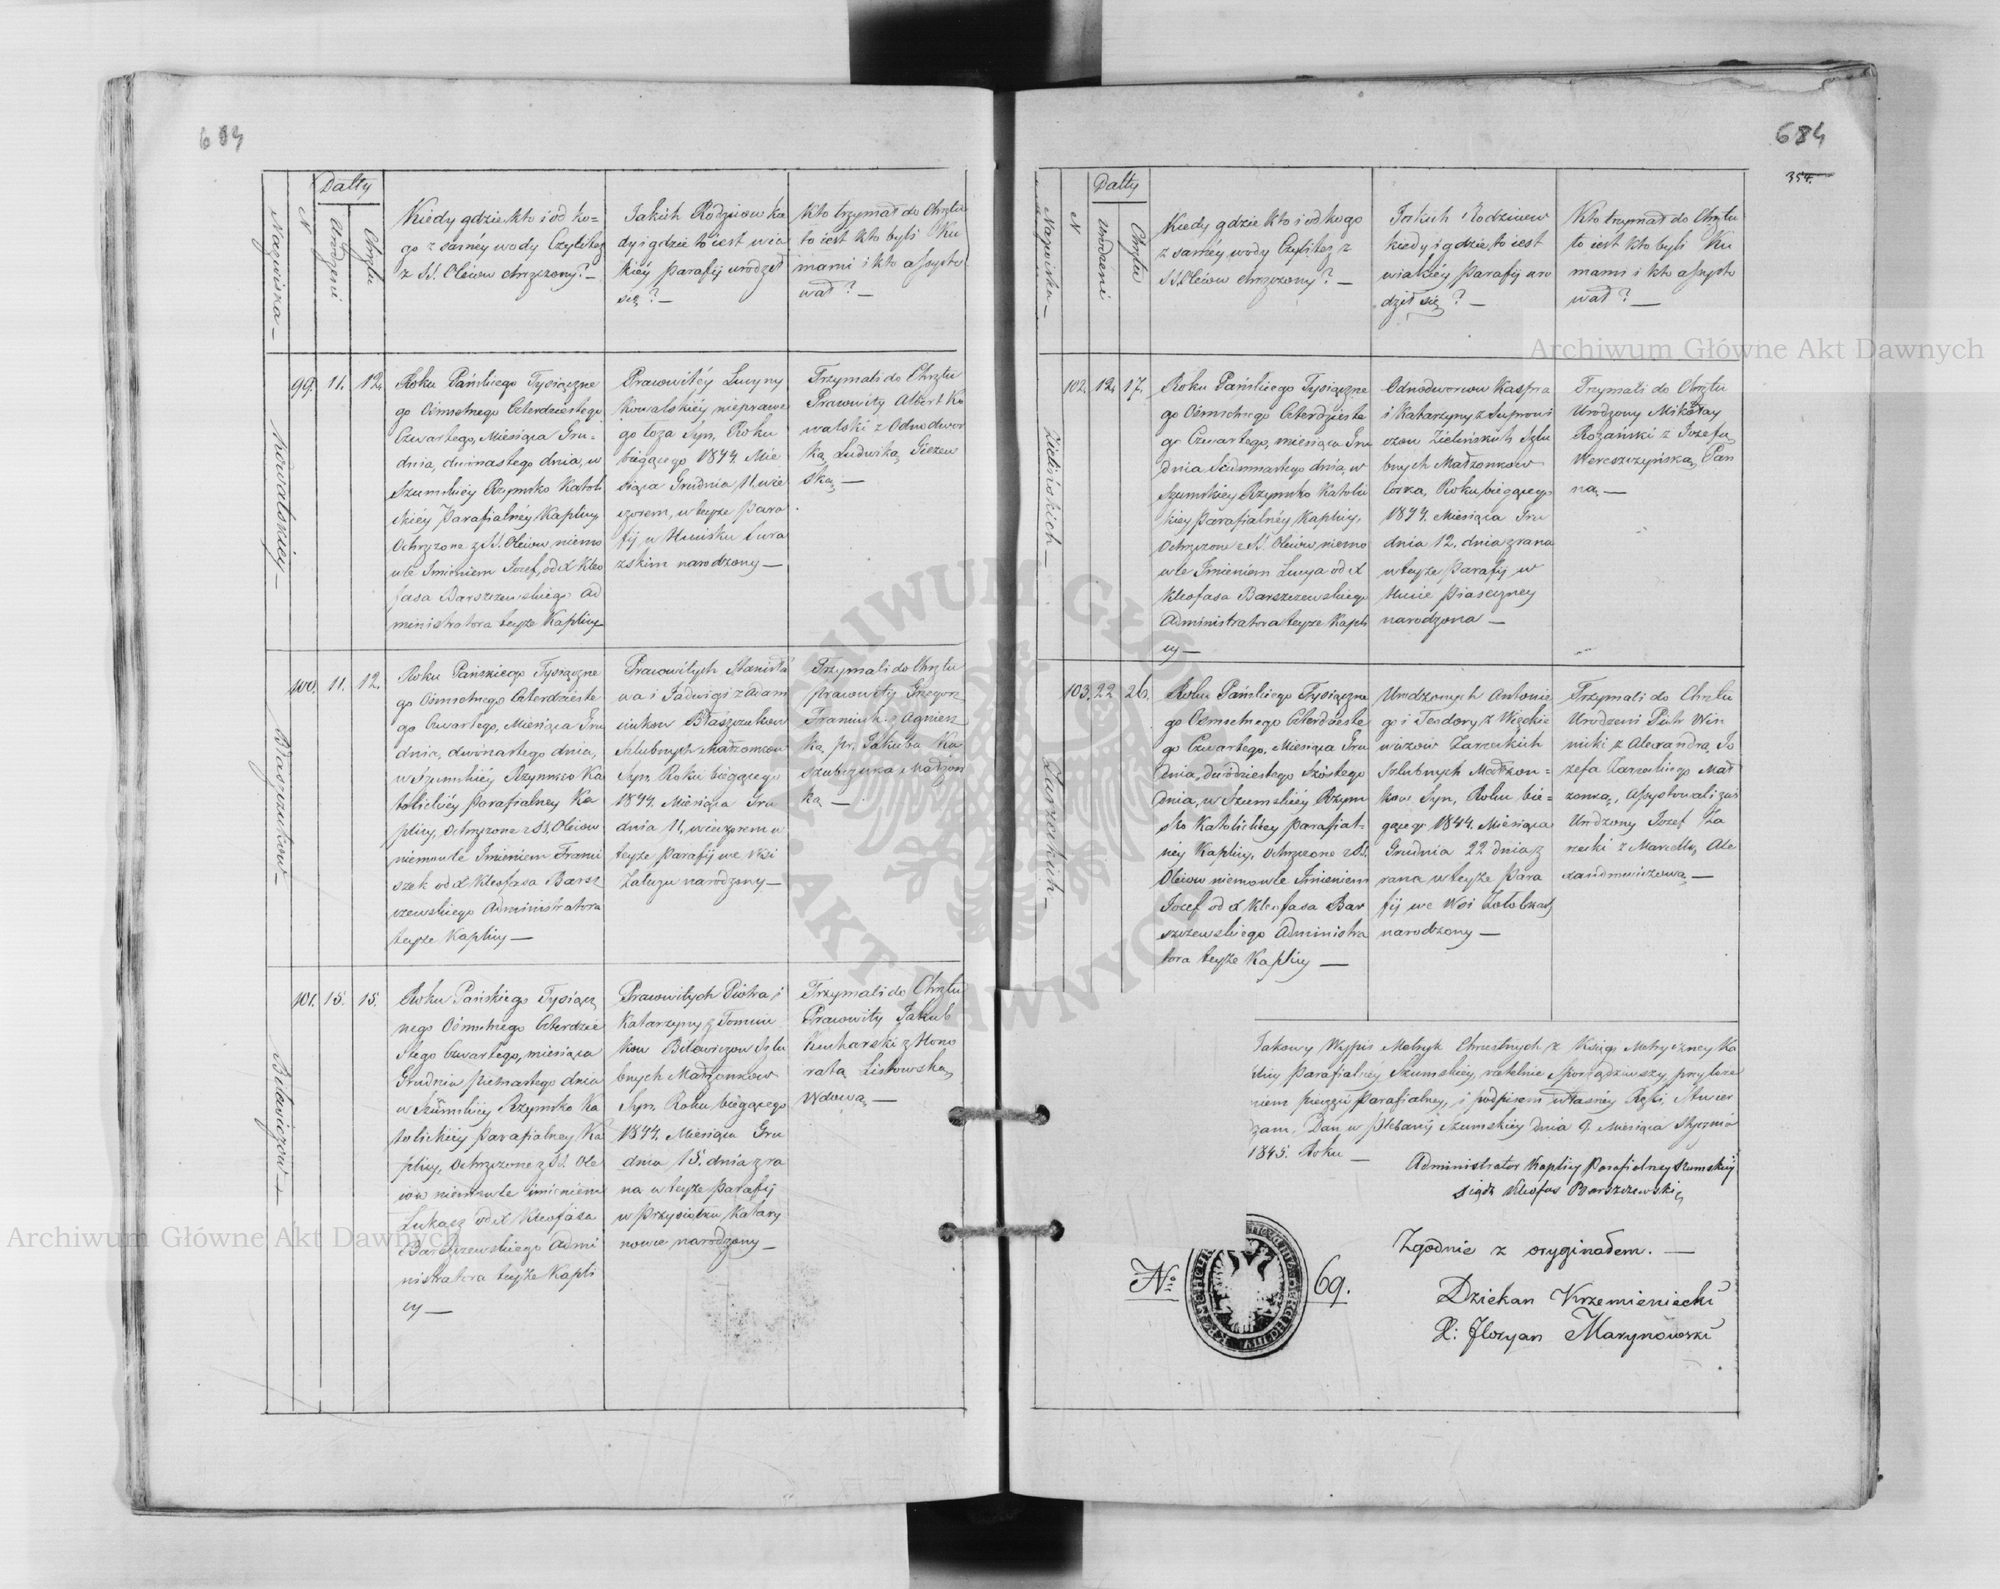 684
Nazwiska —
N
Datty
Urodzeni
Chrztu
Kiedy gdzie kto i od ko=
go z saméy wody Czylitez
z SS. Oleiow chrzczony? —
Jakich Rodzicow kie
dy i gdzie to iest wia
kiéy parafij urodził
się? —
Kto trzymał do Chrztu
to iest kto byli Ku
mami i kto assysto
wał? —
Kowalskiéy —
99. 11. 12.
Roku Pańskiego Tysiączne
go Ośmsetnego Czterdziestego
Czwartego, Miesiąca Gru=
dnia, dwónastego dnia, w
Szumskiéy Rzymsko Katoli
ckiéy Parafialnéy Kaplicy,
Ochrzczone z SS. Oleiow, niemo
wle Imieniem Jozef, od X Kleo
fasa Barszczewskiego Ad
ministratora teyże Kaplicy
Prawowitéy Lucyny
Kowalskiéy nieprawe
go łoża Syn, Roku
bieżącego 1844. Mie
siąca Grudnia 11, wie
czorem, w teyże Para
fij, w
narodzony —
Trzymali do Chrztu
Prawowity Albert Ko
walski z Odnodwor
ką, Ludwiką
ską, —
Błaszczuków —
100. 11. 12.
Roku Pańskiego Tysiączne
go Ośmsetnego Czterdzieste
go Czwartego, Miesiąca Gru
dnia, dwónastego dnia,
w Szumskiéy Rzymsko Ka
tolickiéy Parafialney Ka
plicy, Ochrzczone z SS. Oleiow
niemowle Imieniem Franci
szek od X Kleofasa Barsz
czewskiego Administratora
teyże Kaplicy —
Prawowitych Stanisła
wa i Jadwigi z Adam
Błaszczuków
Szlubnych Małżonkow
Syn, Roku bieżącego
1844. Miesiąca Gru
dnia 11, wieczorem w
teyże Parafij we Wsi
narodzony —
Trzymali do Chrztu
prawowity Grzegorz
z Agniesz
ką, pr. Jakuba Ka
szubczuka Małżon
ką —
Bilewiczow —
101. 15. 15.
Roku Pańskiego Tysiącz
nego Ośmsetnego Czterdzie
stego Czwartego, miesiąca
Grudnia piętnastego dnia
w Szumskiéy Rzymsko Ka
tolickiéy Parafialney Ka
plicy, Ochrzczone z SS. Ole
iow niemowle imieniem
Łukasz od X Kleofasa
Barszczewskiego Admi
nistratora teyże Kapli
cy —
Prawowitych Piotra i
Katarzyny z Tomczu
kow Bilewiczow Szlu
bnych Małżonkow
Syn, Roku bieżącego
1844. Miesiąca Gru
dnia 15. dnia z ra
na w teyże parafij
w Przysiółku Katary
nowce narodzony —
Trzymali do Chrztu
Prawowity Jakub
Kucharski z Hono
ratą Listowską,
Wdową, —
684
354.
Nazwiska —
N
Datty
Urodzeni
Chrztu
Kiedy gdzie kto i od kogo
z saméy wody Czylitez z
SS. Oleiow chrzczony? —
Jakich Rodzicow
kiedy i gdzie, to iest
wiakiéy Parafij uro
dził się? —
Kto trzymał do Chrztu
to iest kto byli Ku
mami i kto assysto
wał? —
Zielińskich —
102. 12. 17.
Roku Pańskiego Tysiączne
go Ośmsetnego Czterdzieste
go Czwartego, miesiąca Gru
dnia Siedmnastego dnia, w
Szumskiey Rzymsko Katolic
kiey Parafialnéy Kaplicy,
Ochrzczone z SS. Oleiów, niemo
wle Imieniem Lucya od X
Kleofasa Barszczewskiego
Administratora teyże Kapli
cy —
Odnodworcow Kaspra
i Katarzyny z
Zielińskich Szlu
bnych Małżonkow
corka, Roku bieżącego
1844. Miesiąca Gru
dnia 12. dnia z rana
w teyże Parafij w
Hucie Piaseczney
narodzona —
Trzymali do Chrztu
Urodzony Mikołay
Rożański z Jozefą,
Wereszczyńską, Pan
ną —
Zarzeckich —
103. 22 26.
Roku Pańskiego Tysiączne
go Ośmsetnego Czterdzieste
go Czwartego, Miesiąca Gru
dnia, dwódziestego Szóstego
dnia, w Szumskiéy Rzym
sko Katolickiey parafial=
néy Kaplicy, Ochrzczone z SS.
Oleiow niemowle Imieniem
Jozef od X Kleofasa Bar
szczewskiego Administra
tora teyże Kaplicy —
Urodzonych Antonie
go i Teodory z
Zarzeckich
Szlubnych Małżon=
kow Syn, Roku bie=
żącego 1844. Miesiąca
Grudnia 22 dnia z
rana w teyże Para
fij we Wsi
narodzony —
Trzymali do Chrztu
Urodzeni Piotr Win
nicki z Alexandrą Jo
zefa Zarzeckiego Mał
żonką, Assystowali zaś
Urodzony Jozef Za
rzecki z Marcellą Ale
xandrowiczową —
Takowy Wypis Metryk Chrzestnych z Księgi Metryczney Ka
plicy Parafialney Szumskiey, rzetelnie Sporządziwszy, przyłoże
niem pieczęci Parafialney, i podpisem własney Ręki Stwier
dzam. Dan w Plebanij Szumskiey dnia 9. Miesiąca Stycznia
1845. Roku —
Administrator Kaplicy Parafialney Szumskiey
Xiądz Kleofas Barszczewski
Zgodnie z oryginałem. —
Dziekan Krzemieniecki
X: Floryan Marynowski
No 69.
Archiwum Główne Akt Dawnych
Archiwum Główne Akt Dawnych
ARCHIWUM GŁÓWNE AKT DAWNYCH